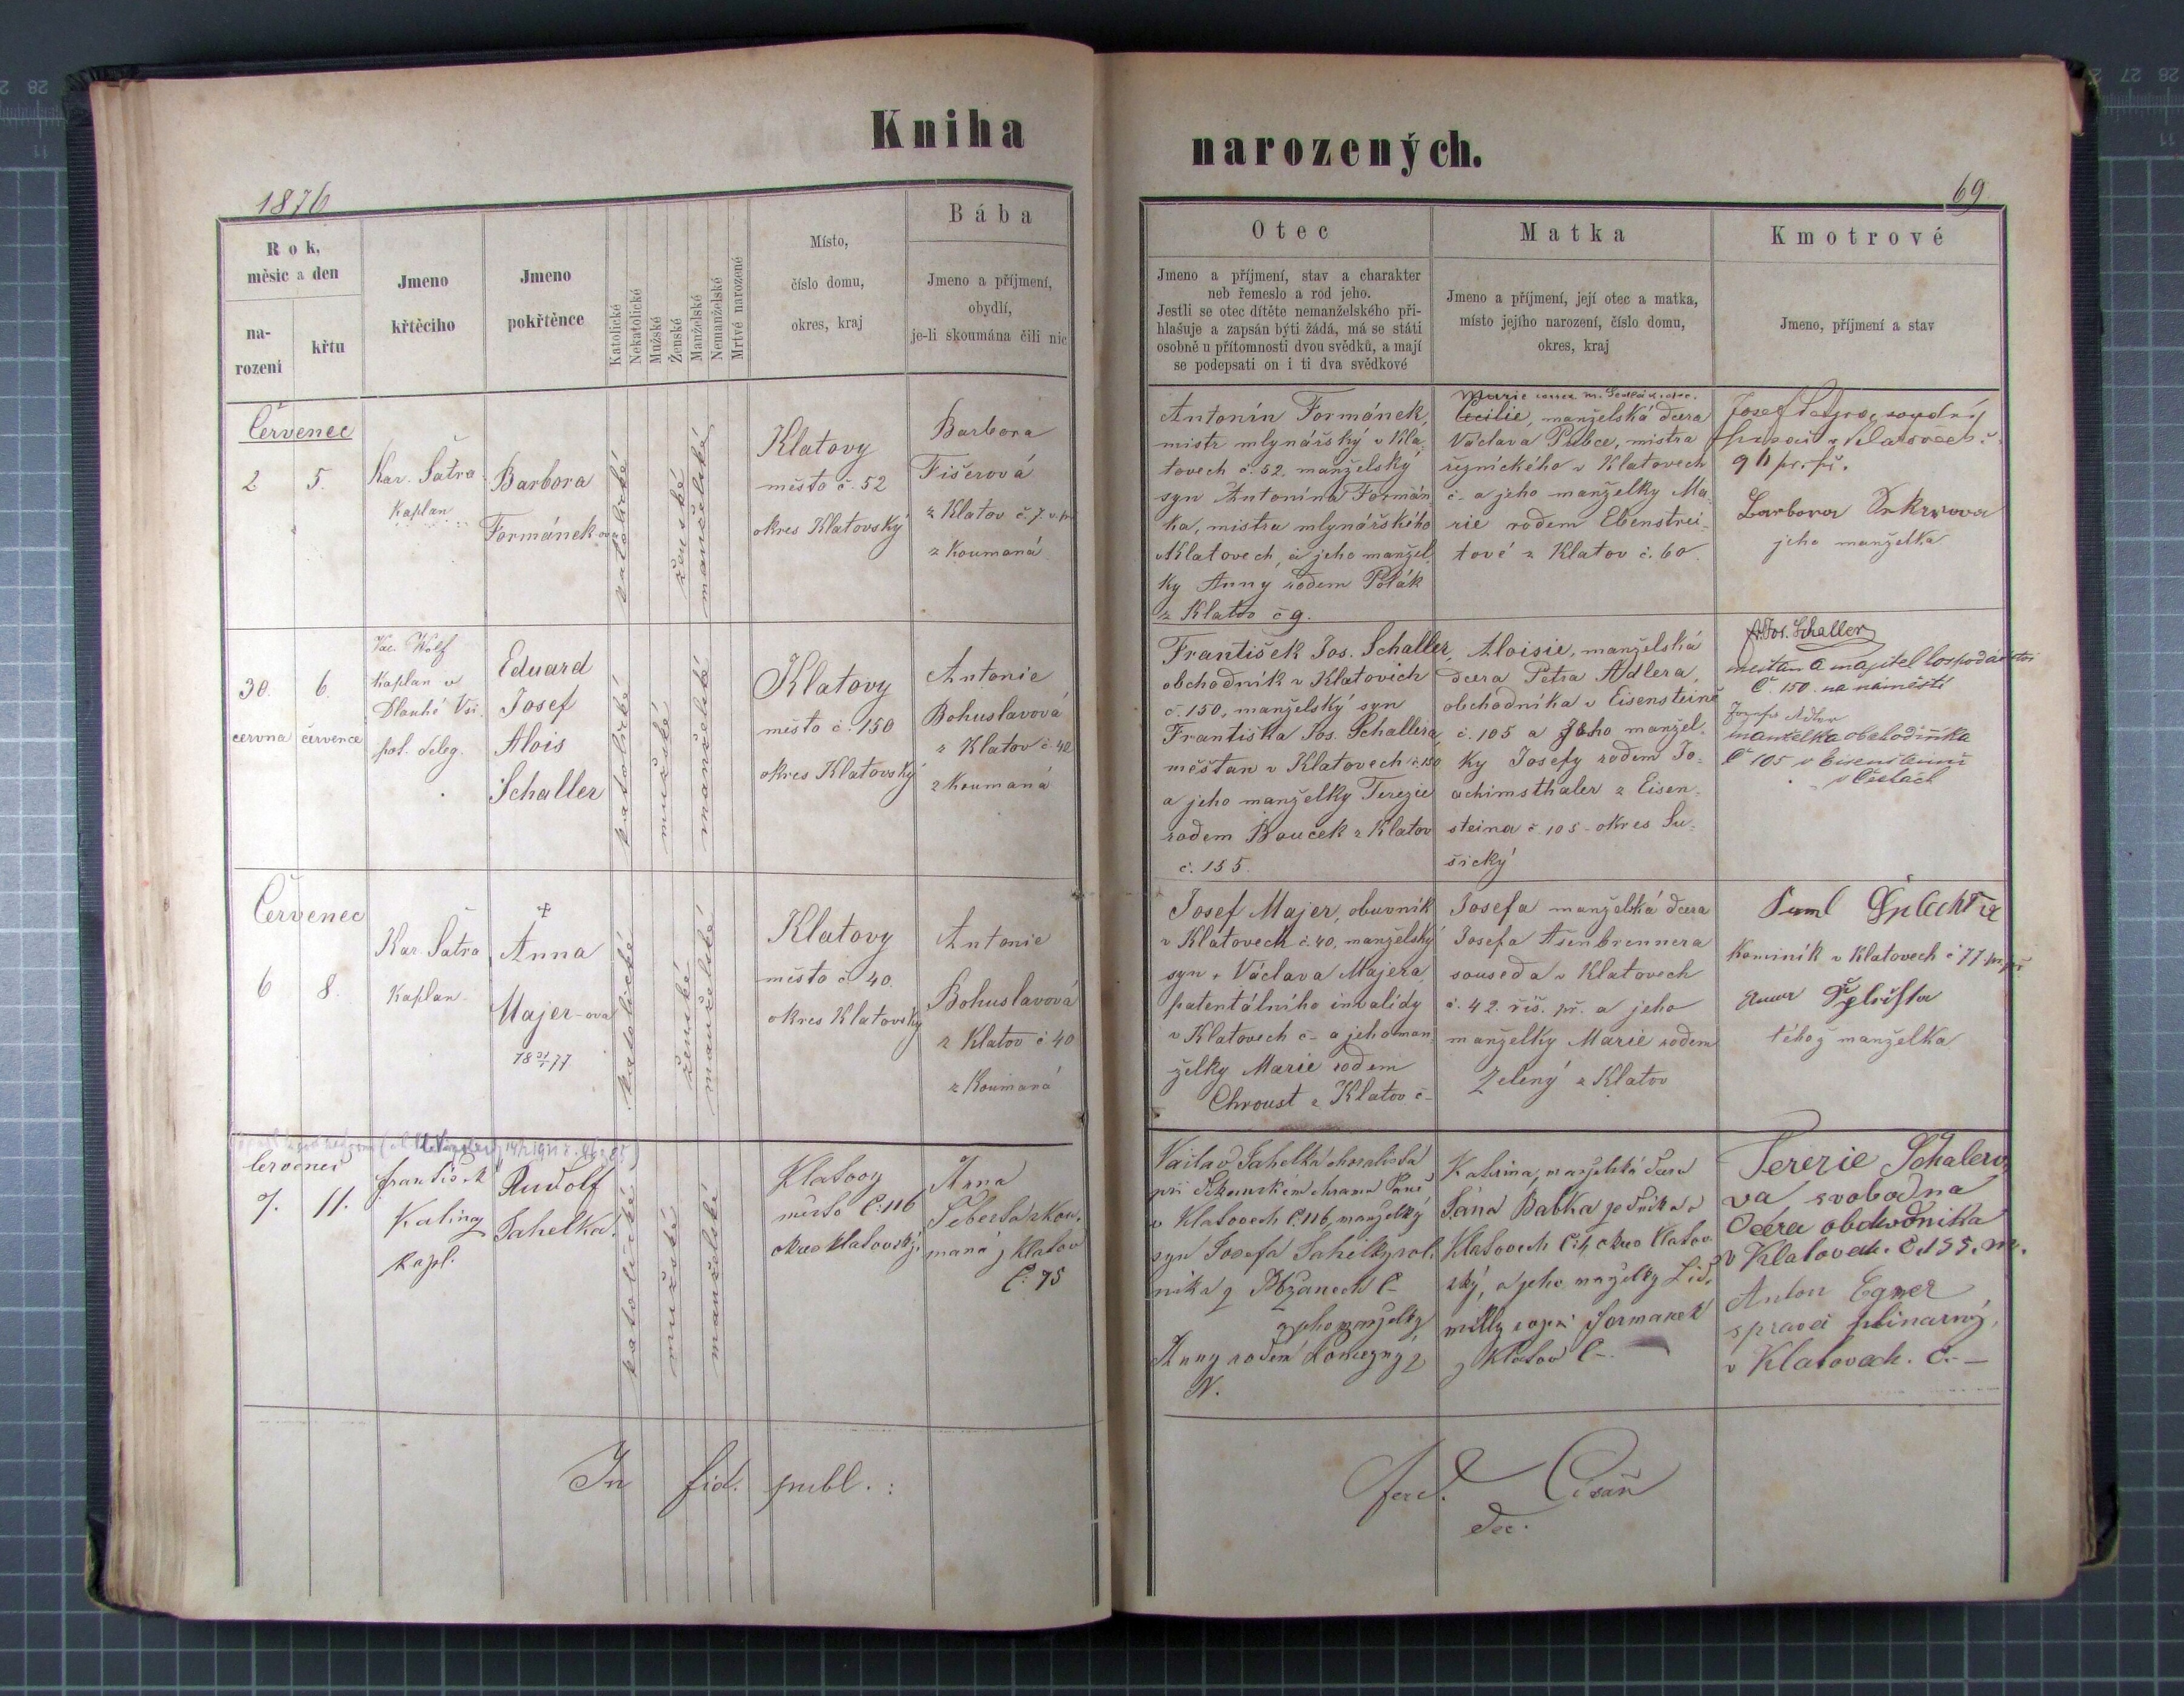 Kniha
narozených.
1876
69
Rok,
měsíc a den
na-
rozeni
křtu
Jmeno
křtěcího
Jmeno
pokřtěnce
Katolické
Nekatolické
Mužské
Ženské
Manželské
Nemanželské
Mrtvě narozené
Místo,
číslo domu,
okres, kraj
Bába
Jmeno a příjmení,
obydlí,
je-li skoumána čili nic
Otec
Jmeno a příjmení, stav a charakter
neb řemeslo a rod jeho.
Jestli se otec dítěte nemanželského při-
hlašuje a zapsán býti žádá, má se státi
osobně u přítomnosti dvou svědků, a mají
se podepsati on i ti dva svědkové
Matka
Jmeno a příjmení, její otec a matka,
místo jejího narození, číslo domu,
okres, kraj
Kmotrové
Jmeno, příjmení a stav
Červenec
2
5.
Kar. Šatra
Kaplan
Barbora
Formánek-ova
katolické
ženské
manželské
Klatovy
město č. 52
okres Klatovský
Barbora
Fišerová
z Klatov č. 7.
zkoumaná
Antonín Formánek,
mistr mlynářský v Kla-
tovech č. 52. manželský
syn Antonína Formán-
ka, mistra mlynářského
v Klatovech, a jeho manžel-
ky Anny rodem Polák
z Klatov č 9.
Marie
Cecilie, manželská dcera
Václava Pubce, mistra
řeznického v Klatovech
č. a jeho manželky Ma-
rie rodem Ebenstrei-
tové z Klatov č. 60.
Josef
v Klatovech č.
Barbora
jeho manželka
30.
června
6.
července
Vac. Wolf
Kaplan v
Dlouhé Vsi.
pol. deleg.
Eduard
Josef
Alois
Schaller
katolické
mužské
manželské
Klatovy
město č. 150
okres Klatovský
Antonie
Bohuslavová
z Klatov č. 42
zkoumaná
František Jos. Schaller,
obchodník v Klatovich
č. 150, manželský syn
Františka Jos. Schallera,
měšťan v Klatovech č. 150
a jeho manželky Terezie
rodem Boucek z Klatov
č. 155.
Aloisie, manželská
dcera Petra Adlera,
obchodníka v Eisensteině
č. 105 a jeho manžel-
ky Josefy rodem Jo-
achimsthaler z Eisen-
steina č. 105 - okres Su-
šický
Fr. Jos. Schaller
mešťan a majitel hospodářství
Č. 150. na náměstí
Josefa Adler
manželka obchodníka
Č 105 v Eisensteině
v Čechách
Červenec
6
8.
Kar. Šatra
Kaplan
†
Anna
Majer-ova
18 21/1 77
katolické
ženské
manželské
Klatovy
město č 40.
okres Klatovský
Antonie
Bohuslavová
z Klatov č 40
zkoumaná
Josef Majer, obuvník
v Klatovech č. 40, manželský
syn Václava Majera,
patentálního invalidy
v Klatovech č- a jeho man-
želky Marie rodem
Chroust z Klatov č-
Josefa manželská dcera
Josefa Ašenbrennera
souseda v Klatovech
č. 42. říš. př. a jeho
manželky Marie rodem
Zelený z Klatov
Kominík v Klatovech č 77 pr. př.
téhož manželka
červenec
7.
11.
František
Kalina
kapl.
Rudolf
Sahelka
katolické
mužské
manželské
Klatovy
město Č: 116
okres Klatovský.
Anna
Šebesta zkou-
maná z Klatov
Č: 75
Vaclav Sahelka choralista
při Děkanském chramu Páně
v Klatovech Č. 116, manželký
syn Josefa Sahelky rol-
nika z Bžanech Č-
a jeho manželky
Anny rodem z
N.
Kateřina, manželská dcera
Jána Babka
Klatovech Č: 4, okres Klatov-
ský, a jeho mnželky Lid-
milly rozené Formanek
z Klatov Č-.
Terezie Schalero-
va svobodna
Dcera obchodnika
v Klatovech. Č. 155. m.
Anton Egner
spravci plinarny,
v Klatovech. Č. -
In fid. publ.:
ferd. Císař
dec.